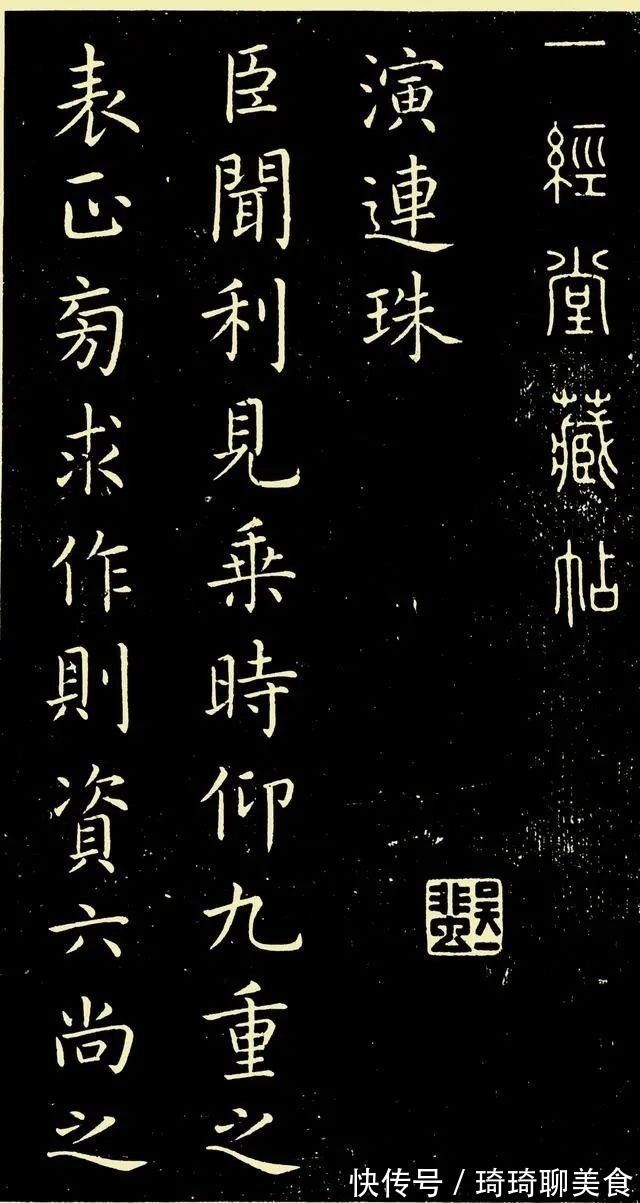 一經堂藏帖
演連珠
臣聞利見乗時仰九重之
表正旁求作則資六尚之
吴一蜚
快传号 / 琦琦聊美食